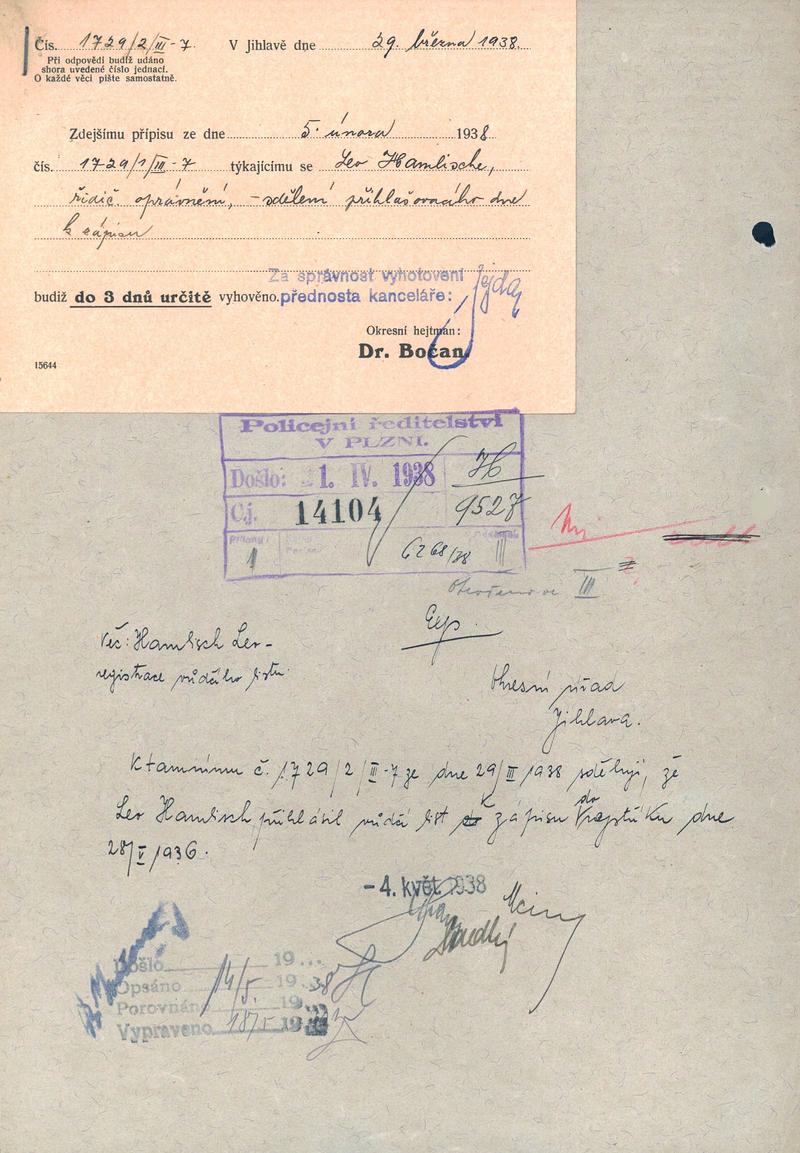 Čís. 1729/2/III-7. V Jihlavě dne 29. března 1938.
Při odpovědi budiž udáno
shora uvedené číslo jednací.
O každé věci pište samostatně.
Zdejšímu přípisu ze dne 5. února 1938
čís. 1729/1/III-7 týkajícímu se Leo Hamlische,
řidič. oprávnění, - sdělení přihlašovacího dne
k zápisu
Za správnost vyhotovení
budiž do 3 dnů určitě vyhověno. přednosta kanceláře:
Okresní hejtman:
Dr. Bočan.
15644
Policejní ředitelství
V PLZNI.
Došlo: 1. IV. 1938 H
Čj. 14104 9527
Přílohy: 1 6268/38 III
III
Věc: Hamlisch Leo -
registrace vůdčího listu.
Okresní úřad
Jihlava.
K tamnímu č. 1729/2/III-7 ze dne 29/III 1938 sděluji, že
Leo Hamlisch přihlásil vůdčí list k zápisu do rejstříku dne
28/V 1936.
-4. květ 1938
Došlo 19
Opsáno 14/5. 1938
Porovnáno 19
Vypraveno 18/5 19